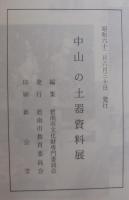 昭和六十二年六月三十日 発行
中山の土器資料展
編集 碧南市文化財専門委員会
発行 碧南市教育委員会
印刷